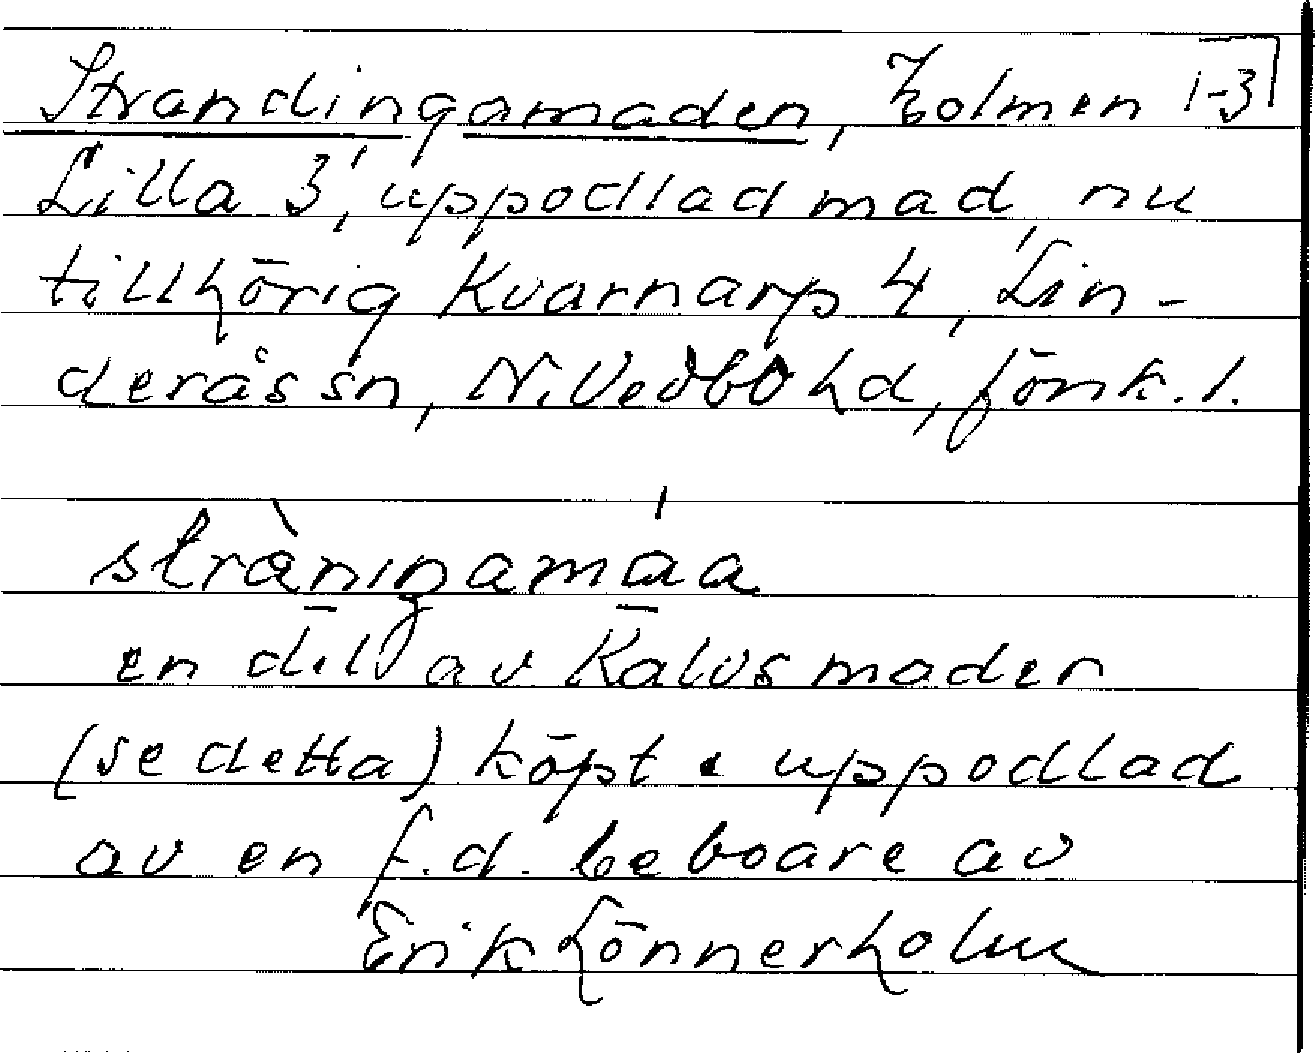 Strandingamaden, Holmen 1-3
Lilla 3, uppodlad mad, nu
tillhörig Kvarnarp 4, Lin-
derås sn, N. Vedbo hd, Jönk. l.
stràniŋamáa
en del av Kalvsmaden
(se detta) köpt o uppodlad
av en f.d. beboare av
Erik Lönnerholm